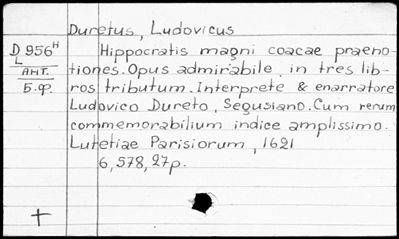 Duretus, Ludovicus
D 956ᴴ
L
АНТ.
Б.Ф.
Hippocratis magni coacae praeno-
tiones. Opus admirabile, in tres lib-
ros tributum. Interprete & enarratore
Ludovico Dureto, Segusiano. Cum rerum
commemorabilium indice amplissimo.
Lutetiae Parisiorum, 1621
6, 578, 27p.